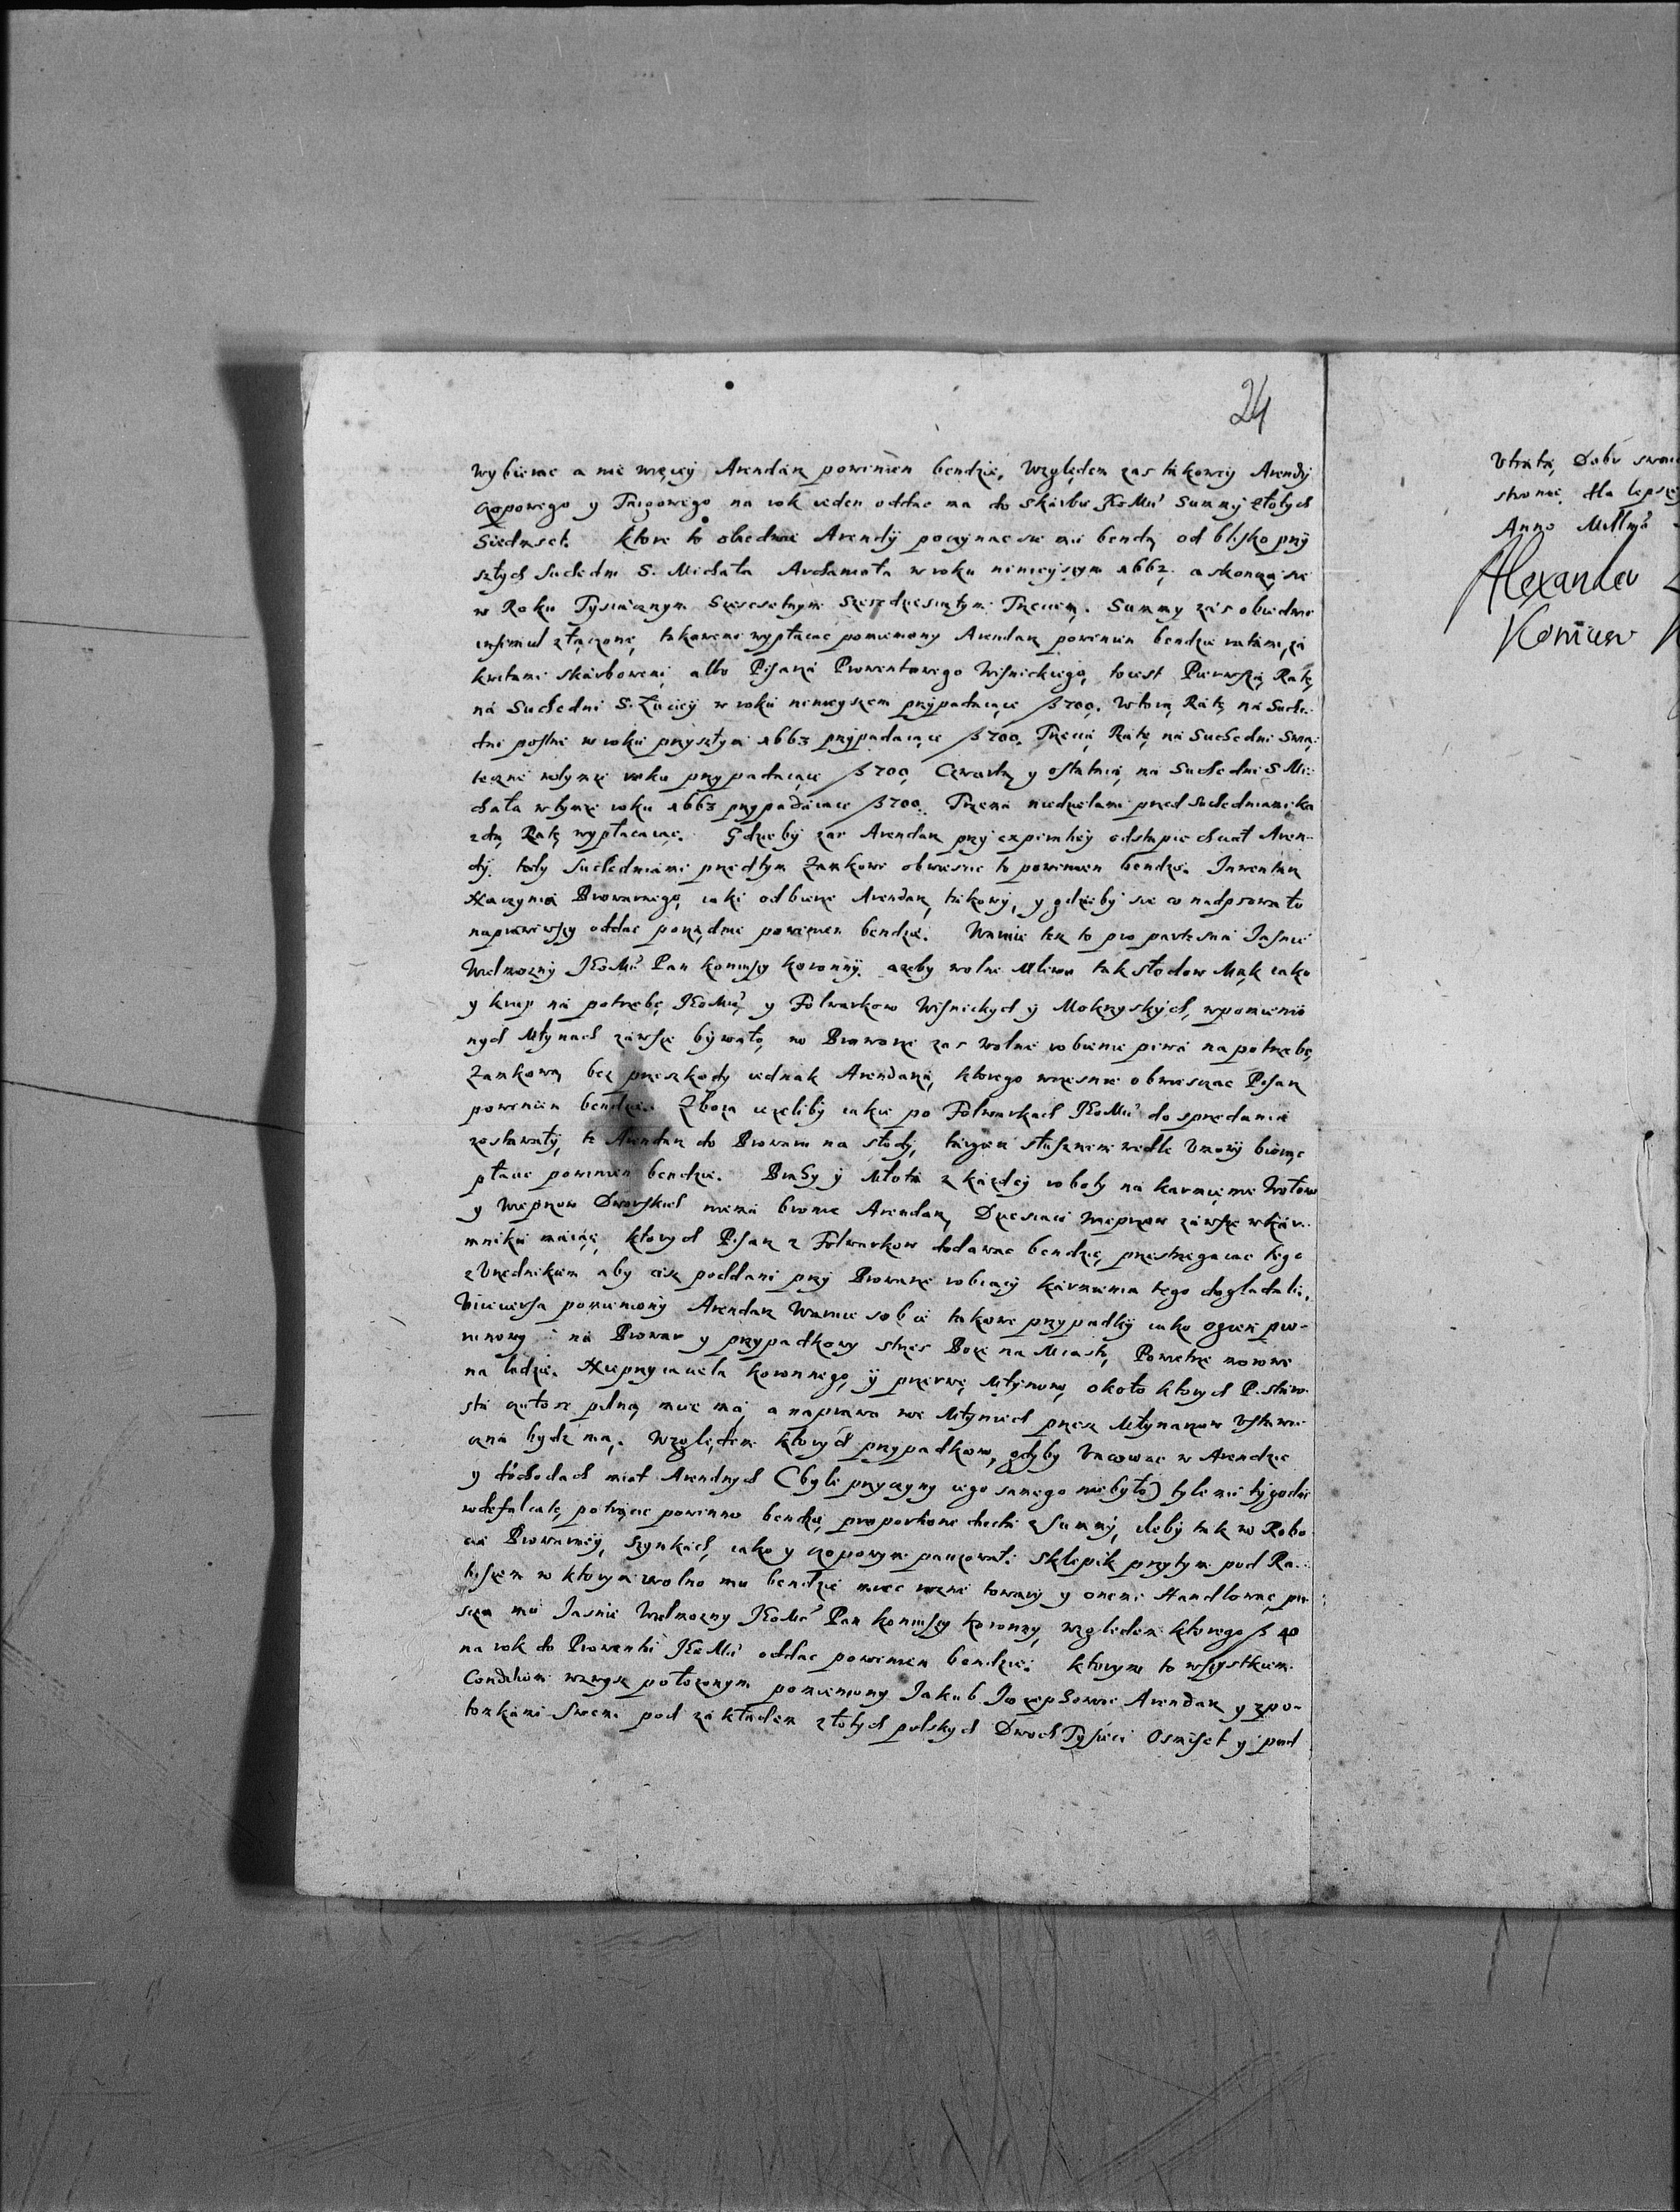 24
wybierac a nie więcy Arendarz powinien bendzie. Względem zas takowey Arendy
czopowego y Targowego na rok ieden oddac ma do Skarbu JEoMci Summy złotych
Siedmset. Ktore to obiedwie Arendy poczynac sie mu bendą od blisko przy
szłych Suchedni S. Michała Archanioła w roku ninieyszym 1662. a skonczą sie
w Roku Tysiącznym Szescsetnym Szescdziesiątym Trzecim. Summy zas obiedwie
insimul złączone, takowemi wypłacac pomieniony Arendarz powinien bendzie ratami, za
kwitami skarbowemi albo Pisarza Prowentowego Wisnickiego, toiest Pierwszą Ratę
na Suchedni S. Łuciey w roku ninieyszem przypadaiące ß 700. Wtorą Ratę na Suche-
dni postne w roku przyszłym 1663 przypadaiące ß 700. Trzecią Ratę na Suchedni Swią-
teczne wtymze roku przypadaiące ß 700, Czwartą y ostatnią na Suchedni S Mi-
chała wtymze roku 1663 przypadaiące ß 700. Trzema niedzielami przed Suchedniami ka
zdą Ratę wypłacaiąc. Gdzieby zas Arendarz przy expiratiey odstąpic chciał Aren-
dy. tedy Suchedniami przedtym Zamkowi obwiescic to powinien bendzie. Inwentarz
Naczynia Browarnego, iaki odbierze Arendarz, takowy, y gdzieby sie co nadpsowało
naprawiwszy oddac porządnie powinien bendzie. Waruie tez to pro parte sua Jasnie
Wielmozny JEoMc Pan Koniuszy Koronny. azeby wolne Mliwa tak słodow Mąk iako
y krup na potrzebę JEoMci, y Folwarkow Wisnickych y Mokrzyskych, wpomienio
nych Młynach zawsze bywało, w Browarze zas wolne robienie piwa na potrzebę
Zamkową bez przeszkody iednak Arendarza, ktorego wczesnie obwieszczac Pisarz
powinien bendzie. Zboza iezeliby iakie po Folwarkach JEoMci do sprzedania
zostawały, te Arendarz do Browaru na słody, targiem słusznem wedle Umowy biorąc
płacic powinien bendzie. Brahy y Młota z kazdey roboty na karmienie Wołow
y Wieprzow Dworskich niema bronic Arendarz, Dziesiąci wieprzow zawsze wkar-
mniku maiąc, ktorych Pisarz z Folwarkow dodawac bendzie, przestrzegaiąc tego
z Urzednikiem aby ciz poddani przy Browarze robiący karmienia tego dogladali,
Viceversa pomieniony Arendarz Waruie sobie takowe przypadky iako ogien pio-
runowy na Browar y przypadkowy strzes Boze na Miasto, Powietrze morowe
na ludzie. Nieprzyiaciela koronnego, y przerwę Młynową około ktorych P. Staro-
sta autore pilną miec ma, a naprawa we Młyniech przez Młynarzow Ustawi-
czna bydz ma. Względem ktorych przypadkow, gdyby Vacowac w Arendzie
y dochodach miał Arendnych (byle przyczyny iego samego niebyło) tyle mu tygodni
w defalcatę, potrącic powinno bendzie, proportione dictae Summy, ileby tak w Robo-
cie Browarney, Szynkach, iako y czopowym panzował. Sklepik przytym pod Ra-
tuszem w ktorym wolno mu bendzie miec rozne towary y onemi Handlowac pu-
scza mu Jasnie Wielmozny JEoMc Pan Koniuszy Koronny, wzgledem ktorego ß 40
na rok do Prowentu JEoMci oddac powinien bendzie. Ktorym to wszystkiem
Conditiom wzwysz połozonym pomieniony Jakub Jozephowic Arendarz y zpo-
tomkami swem. pod zakładem złotych polskych Dwoch Tysięci Osmiset y pod
Utratą Dobr
stronę. dla lepszey
Anno Millmo
Alexander
Koniusz